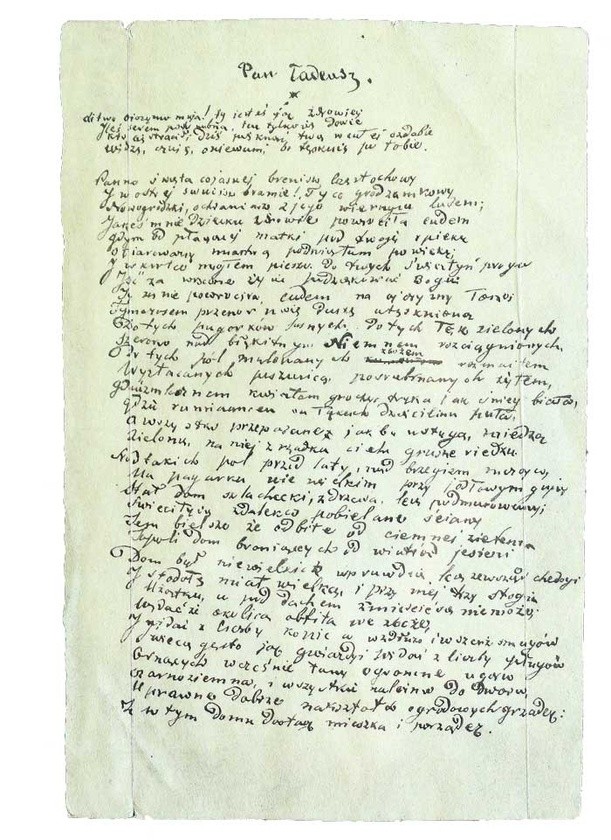 Pan Tadeusz.
Litwo Ojczyzno moja! ty jesteś jak zdrowie;
ten tylko się dowie
Kto cię stracił. Dziś piękność twą w całej ozdobie
Widzę, czuję, opiewam, bo tęsknię po tobie.
Panno święta co jasnej bronisz Częstochowy
I w ostrej świecisz bramie! Ty co gród zamkowy
Nowogródzki, ochraniasz z jego wiernym ludem;
Jakoś mnie dziecko zdrowie powróciła cudem
Gdym od płaczącej matki pod twoją opiekę
Ofiarowany martwą podniosłem powiekę
I wkrótce mogłem pieszo do twych świątyń progu
Iść za wrócone życie podziękować Bogu
cudem na ojczyzny łono
Tymczasem przenoś moją duszę utęsknioną
Do tych pagórków leśnych, do tych łąk zielonych
Szeroko nad błękitnym Niemnem rozciągnionych,
Do tych pól malowanych zbożem rozmaitem
Wyzłacanych pszenicą, posrebrzanych żytem,
kwiatem groch, gryka jak śnieg biała,
gdzie rumieńcem na łąkach dzięcielina pała,
A wszystko przepasane jakby wstęgą, miedzą
Zieloną, na niej z rzadka ciche grusze siedzą.
takich pól przed laty, nad brzegiem ruczaju,
Na pagórku niewielkim przy jodłowym gaju
Stał dom szlachecki, z drzewa, lecz podmurowany;
z daleka pobielane ściany
Tym bielsze że odbite od ciemnej zieleni
Topoli dom broniących od wiatrów jesieni
Dom był niewielki wprawdzie, lecz zewsząd chędogi
I stodołę miał wielką, i przy niej trzy stogi
Użątku, co pod dachem zmieścić się nie może;
Widać że okolica obfita we zboże,
I widać z liczby kopic co wzdłuż i wszerz smugów
Świecą gęsto jak gwiazdy widać z liczby pługów
Orzących wcześnie łany ogromne ugoru
Czarnoziemne, i wszystkie należne do dworu,
Uprawne dobrze na kształt ogrodowych grządek:
Że w tym domu dostatek mieszka i porządek.